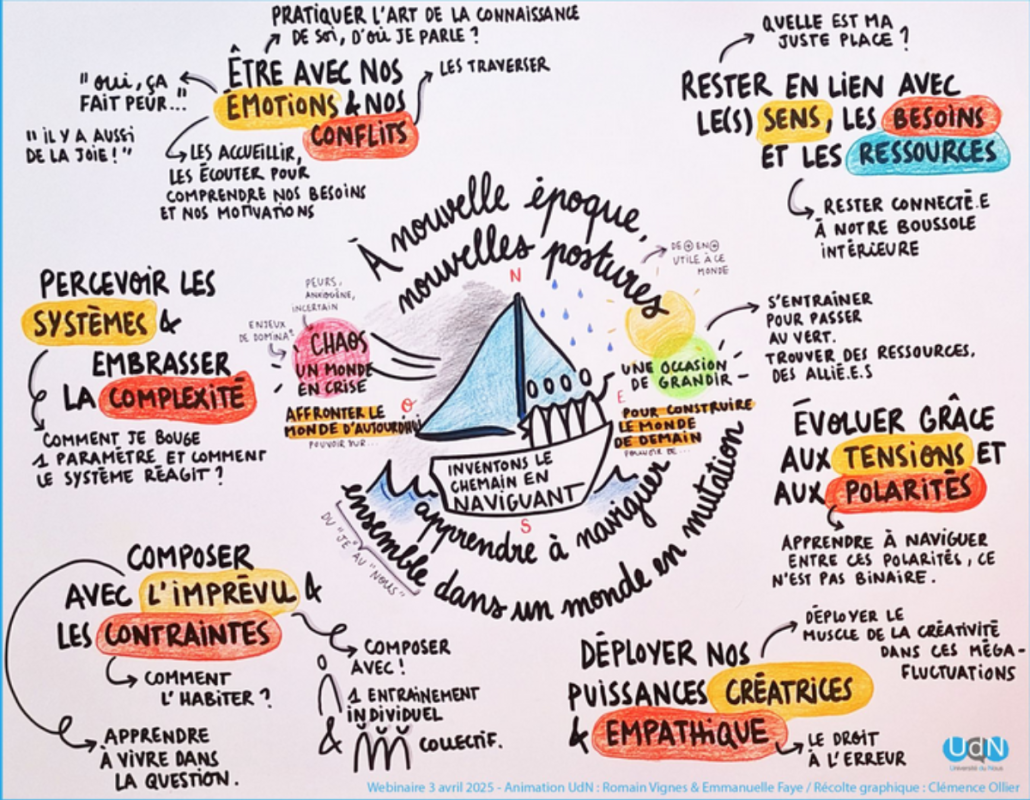 PRATIQUER L'ART DE LA CONNAISSANCE
DE SOI, D'OÙ JE PARLE ?
ÊTRE AVEC NOS
ÉMOTIONS & NOS
CONFLITS
LES TRAVERSER
"OUI, ÇA
FAIT PEUR..."
"IL Y A AUSSI
DE LA JOIE !"
LES ACCUEILLIR,
LES ÉCOUTER POUR
COMPRENDRE NOS BESOINS
ET NOS MOTIVATIONS
QUELLE EST MA
JUSTE PLACE ?
RESTER EN LIEN AVEC
LE(S) SENS, LES BESOINS
ET LES RESSOURCES
RESTER CONNECTÉ.E
À NOTRE BOUSSOLE
INTÉRIEURE
À nouvelle époque,
nouvelles postures
PERCEVOIR LES
SYSTÈMES &
EMBRASSER
LA COMPLEXITÉ
COMMENT JE BOUGE
1 PARAMÈTRE ET COMMENT
LE SYSTÈME RÉAGIT ?
PEURS,
ANXIOGÈNE,
INCERTAIN
ENJEUX
DE DOMINA°
CHAOS
UN MONDE
EN CRISE
AFFRONTER LE
MONDE D'AUJOURD'HUI
POUVOIR SUR...
N
O
E
S
DE + EN +
UTILE À CE
MONDE
UNE OCCASION
DE GRANDIR
POUR CONSTRUIRE
LE MONDE
DE DEMAIN
POUVOIR DE...
S'ENTRAÎNER
POUR PASSER
AU VERT.
TROUVER DES RESSOURCES,
DES ALLIÉ.E.S
INVENTONS LE
CHEMAIN EN
NAVIGUANT
apprendre à naviguer
ensemble dans un monde en mutation
DU "JE AU "NOUS"
ÉVOLUER GRÂCE
AUX TENSIONS ET
AUX POLARITÉS
APPRENDRE À NAVIGUER
ENTRE CES POLARITÉS, CE
N'EST PAS BINAIRE.
COMPOSER
AVEC L'IMPRÉVU &
LES CONTRAINTES
COMMENT
L'HABITER ?
APPRENDRE
À VIVRE DANS
LA QUESTION.
COMPOSER
AVEC !
1 ENTRAINEMENT
INDIVIDUEL
& COLLECTIF.
DÉPLOYER NOS
PUISSANCES CRÉATRICES
& EMPATHIQUE
DÉPLOYER LE
MUSCLE DE LA CRÉATIVITÉ
DANS CES MÉGA-
FLUCTUATIONS
LE DROIT
À L'ERREUR
UdN
Université du Nous
Webinaire 3 avril 2025 - Animation UdN : Romain Vignes & Emmanuelle Faye / Récolte graphique : Clémence Ollier